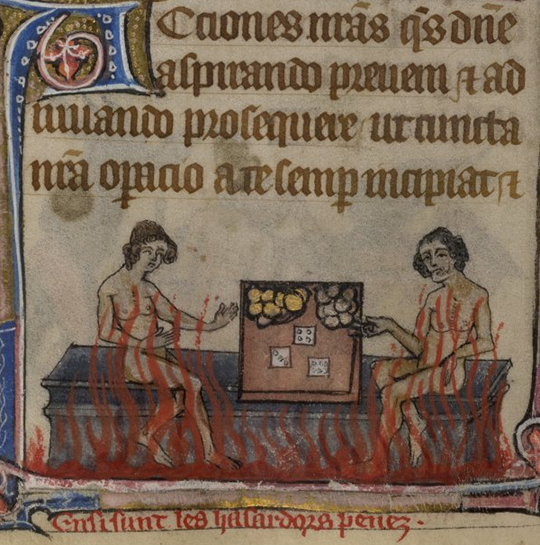 ACciones nr̃as q̃s dñe
aspirando preueni ⁊ ad
iuuando prosequere ut cuncta
nr̃a oꝑacio a te semꝑ incipiat ⁊
Ensi sunt les hasardors penez.